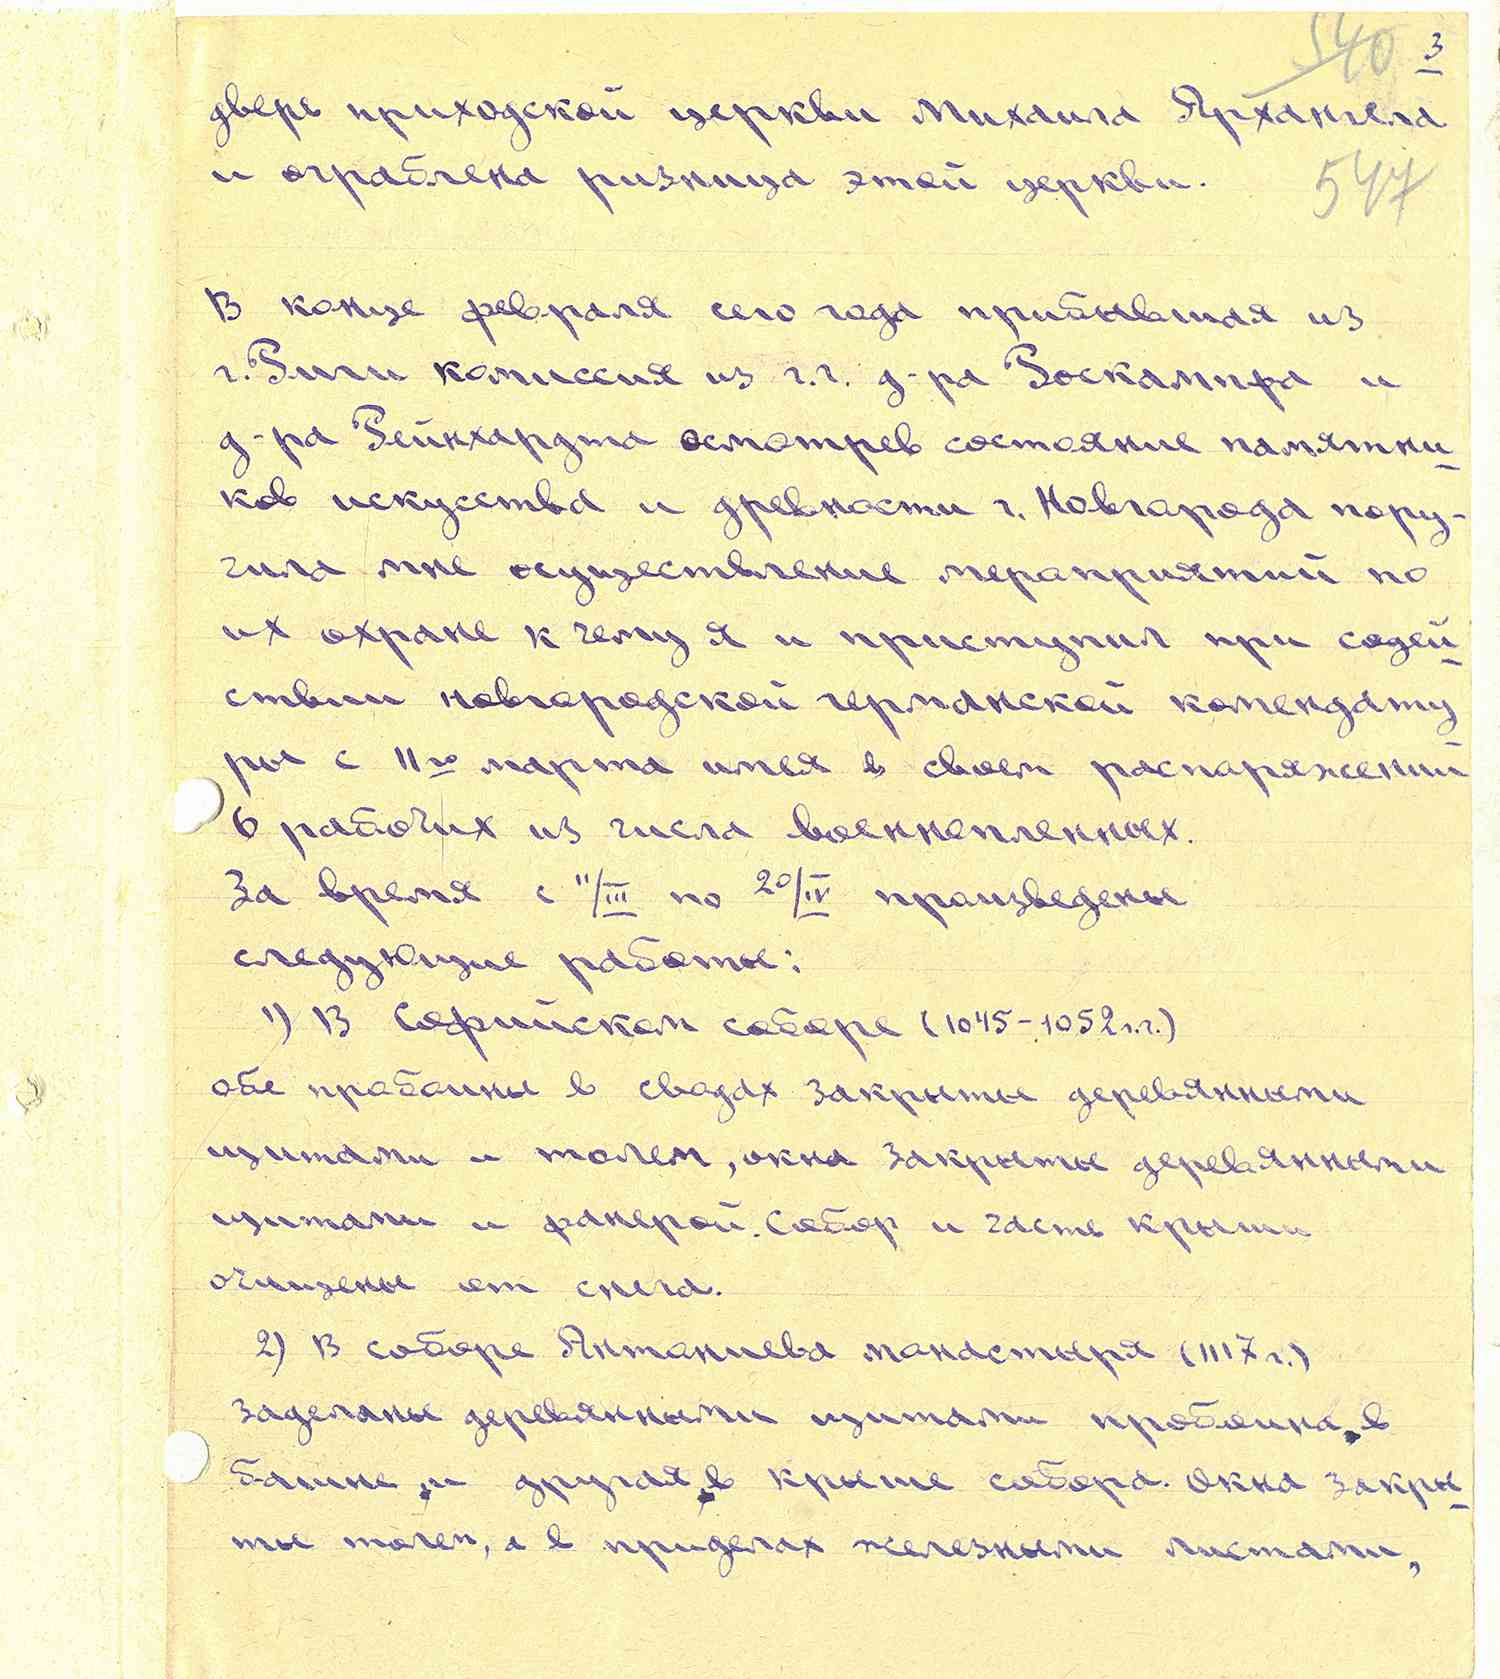 540 3
дверь приходской церкви Михаила Архангела
и ограблена ризница этой церкви.
547
В конце февраля сего года прибывшая из
г. Риги комиссия из г.г. д-ра Роскампфа и
д-ра Рейнхардта осмотрев состояние памятни-
ков искусства и древности г. Новгорода пору-
чила мне осуществление мероприятий по
их охране к чему я и приступил при содей-
ствии новгородской германской комендату
ры с 11го марта имея в своем распоряжении
6 рабочих из числа военнопленных.
За время с 11/III по 20/IV произведены
следующие работы:
1) В Софийском соборе (1045-1052 г.г.)
обе пробоины в сводах закрыты деревянными
щитами и толем, окна закрыты деревянными
щитами и фанерой. Собор и часть крыши
очищены от снега.
2) В соборе Антониева монастыря (1117 г.)
заделаны деревянными щитами пробоина, в
башне, и другая, в крыше собора. Окна закры-
ты толем, а в приделах железными листами,